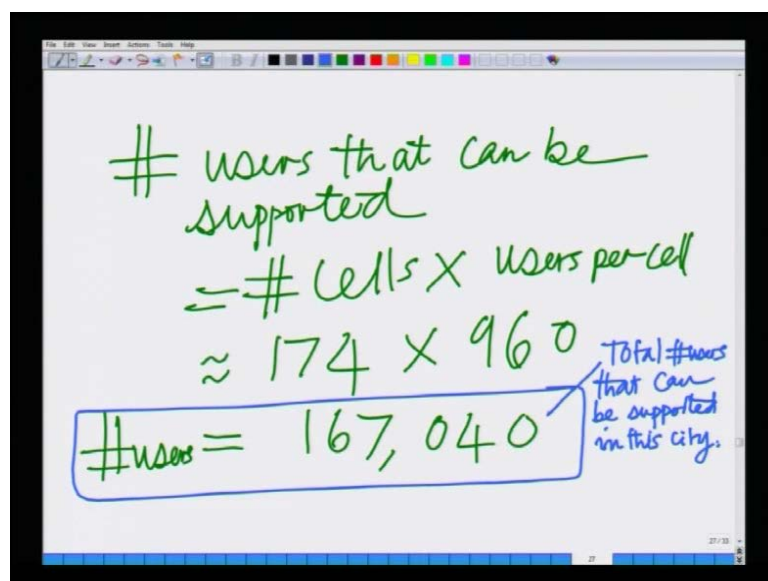 File Edit View Insert Actions Tools Help
# users that can be
supported
= # Cells X users per cell
≈ 174 X 960
#users = 167,040
Total #users
that can
be supported
in this city.
27/33
27